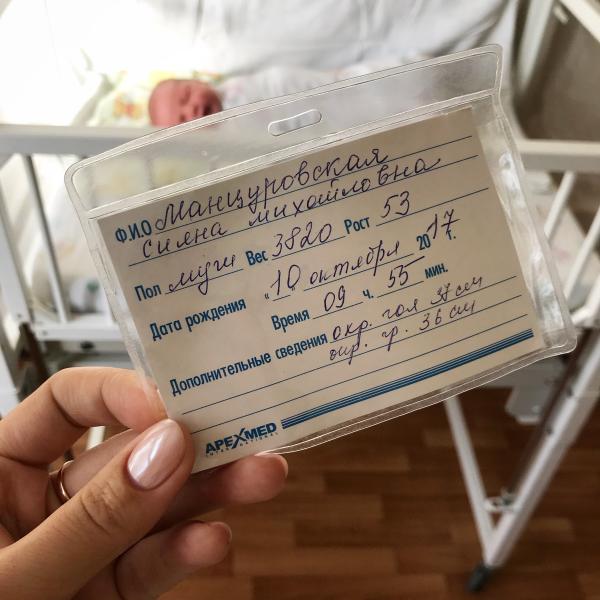 Ф.И.О Манцуровская
сияна михайловна
Пол муж Вес 3820 Рост 53
Дата рождения "10 октября 2017 г.
Время 09 ч. 55 мин.
Дополнительные сведения окр. гол 37 см
окр. гр. 36 см
APEXMED
INTERNATIONAL